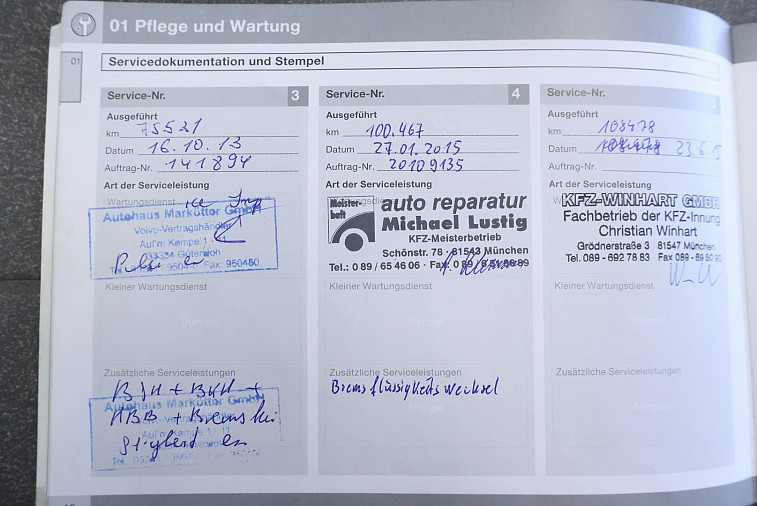 01 Pflege und Wartung
01
Servicedokumentation und Stempel
Service-Nr. 3
Ausgeführt
km 75521
Datum 16.10.13
Auftrag-Nr. 141894
Art der Serviceleistung
Wartungsdienst
Autohaus Markötter GmbH
Volvo-Vertragshändler
Auf'm Kampe 1 -
33334 Gütersloh
Fax: 950450
Kleiner Wartungsdienst
Stempel
Zusätzliche Serviceleistungen
Autohaus Markötter GmbH
Volvo-Vertragshändler
Auf'm Kampe 1 - 11
Service-Nr. 4
Ausgeführt
km 100.467
Datum 27.01.2015
Auftrag-Nr. 20109135
Art der Serviceleistung
Meister-
haft
auto reparatur
Michael Lustig
KFZ-Meisterbetrieb
Schönstr. 78 · 81543 München
Tel.: 0 89 / 65 46 06 · Fax 0 89
Kleiner Wartungsdienst
Stempel
Zusätzliche Serviceleistungen
Bremsflüssigkeitswechsel
Stempel
Service-Nr. 5
Ausgeführt
km 108478
Datum 23.6.15
Auftrag-Nr.
Art der Serviceleistung
KFZ-WINHART GMBH
Fachbetrieb der KFZ-Innung
Christian Winhart
Grödnerstraße 3 81547 München
Tel. 089 - 692 78 83 Fax 089 - 69 50 90
Kleiner Wartungsdienst
Stempel
Zusätzliche Serviceleistungen